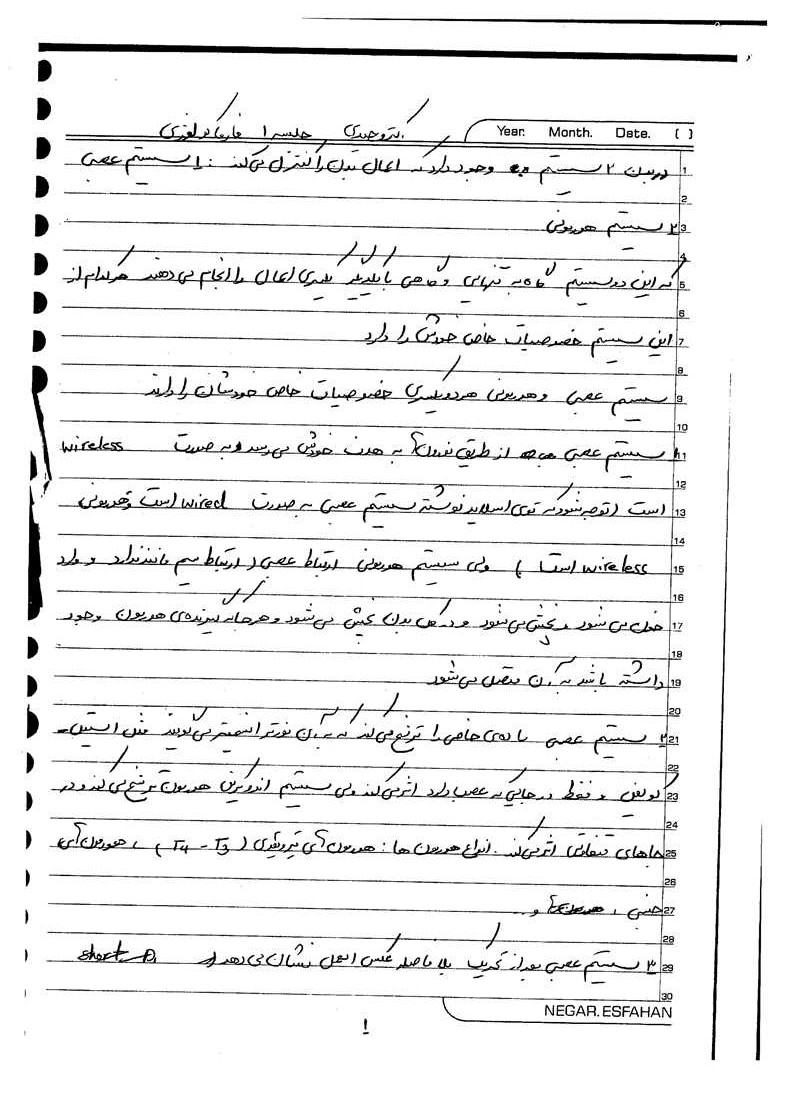 دکتر وحیدی، جلسه ۱ فارماکولوژی
Year. Month. Date. ( )
در بدن ۲ سیستم وجود دارد که اعمال بدن را کنترل می‌کند: ۱ سیستم عصبی
۲ سیستم هورمونی
که این دو سیستم گاه به تنهایی و گاهی با یکدیگر یکسری اعمال را انجام می‌دهند هرکدام از
این سیستم خصوصیات خاص خودش را دارد
سیستم عصبی و هورمونی هردو یکسری خصوصیات خاص خودشان را دارند
۱ سیستم عصبی از طریق نورون‌ها به هدف خودش می‌رسد و به صورت wireless
است (توجه شود که توی اسلاید نوشته سیستم عصبی به صورت wired است و هورمونی
wireless است) ولی سیستم هورمونی ارتباط عصبی (ارتباط سیم مانند ندارد و وارد
خون می‌شود و پخش می‌شود و در کل بدن پخش می‌شود و هر جا که گیرنده‌ی هورمون وجود
داشته باشد به آن متصل می‌شود
۲ سیستم عصبی ماده‌ی خاصی را ترشح می‌کند که به آن نوروترانسمیتر می‌گویند مثل استیل-
کولین و فقط در جایی که عصب دارد اثر می‌کند ولی سیستم اندوکرین هورمون ترشح می‌کند و در
جاهای متفاوتی اثر می‌کند. انواع هورمون ها: هورمون‌های تیروئیدی (T4 - T3)، هورمون‌های
جنسی، و..
۳ سیستم عصبی بعد از تحریک بلافاصله عکس العمل نشان می‌دهد
NEGAR.ESFAHAN
۱